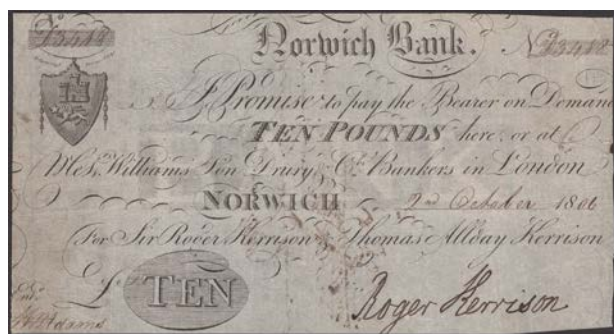 Norwich Bank.
I Promise to pay the Bearer on Deman
TEN POUNDS here or at
Mess. Williams Son Drury & Co. Bankers in London
NORWICH 2nd October 1806
For Sir Roger Kerrison & Thomas Allday Kerrison
£ TEN
Roger Kerrison
Adams